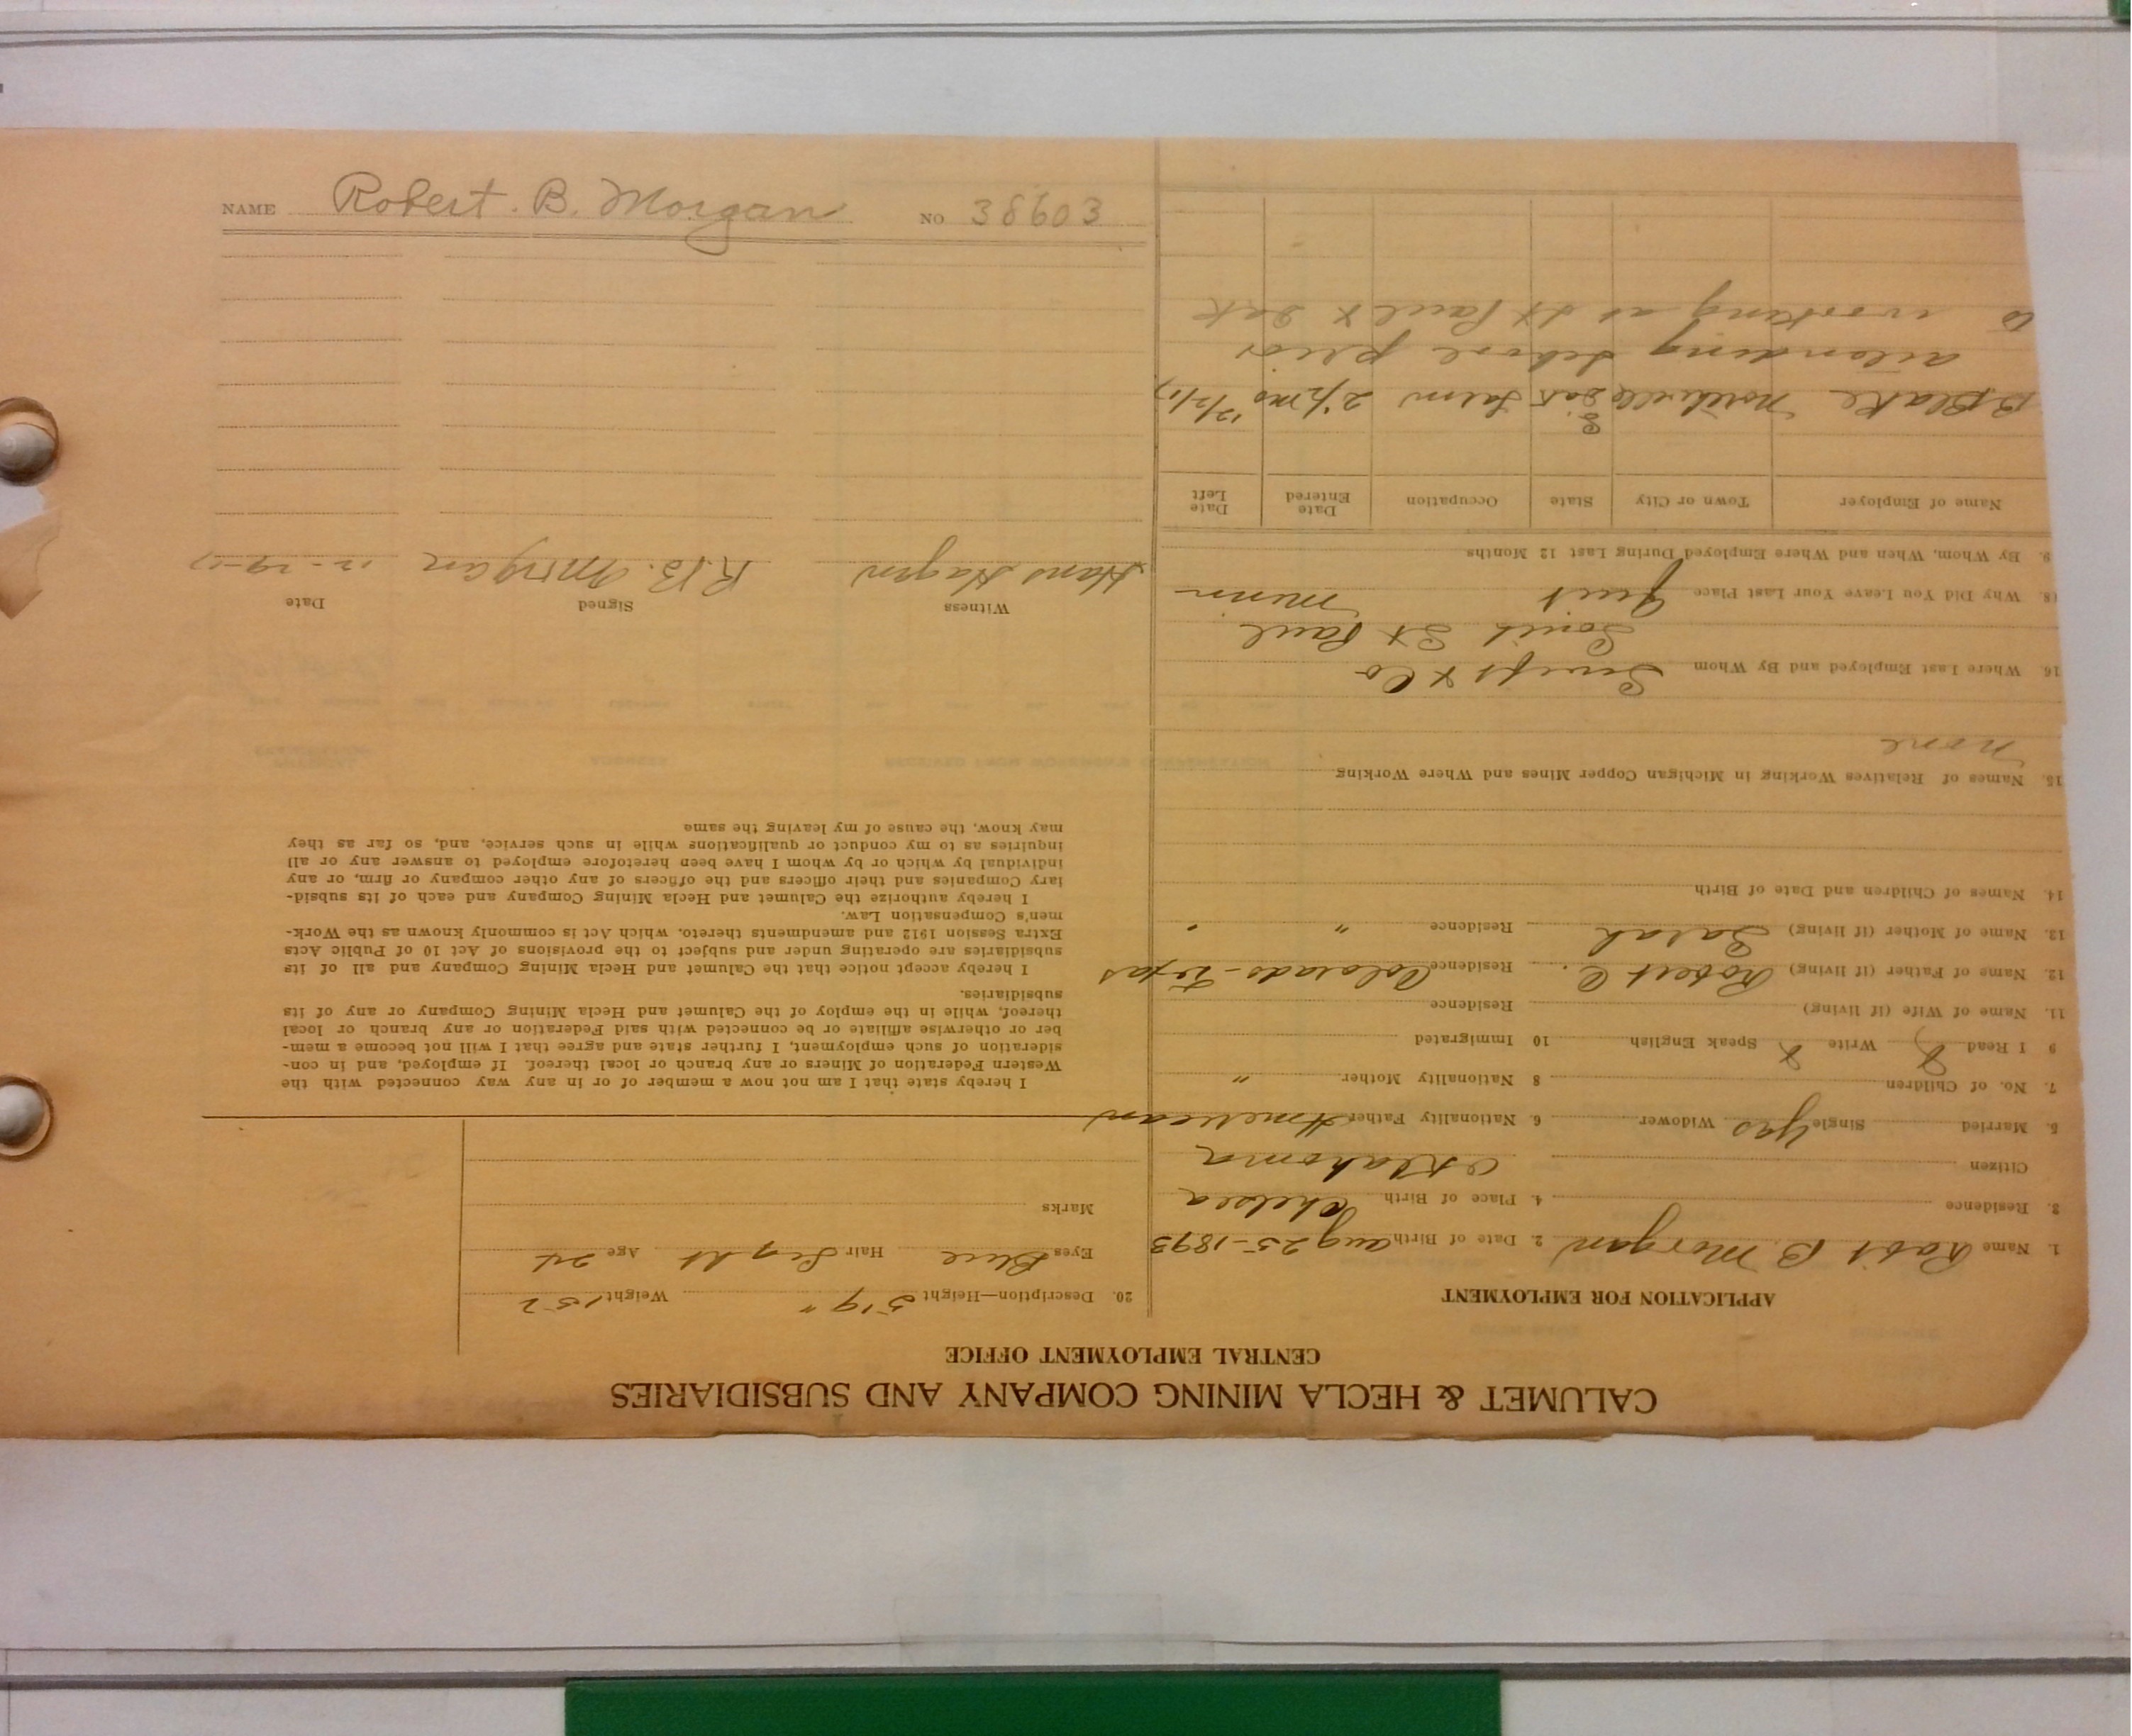 CALUMET & HECLA MINING COMPANY AND SUBSIDIARIES
CENTRAL EMPLOYMENT OFFICE
APPLICATION FOR EMPLOYMENT
1. Name Robt B. Morgan 2. Date of Birth Aug 25-1893
3. Residence 4. Place of Birth Chelsea
Citizen Oklahoma
5. Married Single Yes Widower 6. Nationality Father American
7. No. of Children 8 Nationality Mother "
9 I Read Write Speak English 10 Immigrated
11. Name of Wife (if living) Residence
12. Name of Father (if living) Robert C. Residence Colorado-Texas
13. Name of Mother (if living) Sarah Residence " "
14. Names of Children and Date of Birth
15. Names of Relatives Working in Michigan Copper Mines and Where Working
None
16. Where Last Employed and By Whom Swift & Co
South St Paul
18. Why Did You Leave Your Last Place Quit Minn
9. By Whom, When and Where Employed During Last 12 Months
Name of Employer Town or City State Occupation Date Entered Date Left
B Blake Northville S. Dak Farm 2 1/2 mo
prior
to working at St Paul & Dak
20. Description—Height 5'9" Weight 152
Eyes Blue Hair Light Age 24
Marks
I hereby state that I am not now a member of or in any way connected with the
Western Federation of Miners or any branch or local thereof. If employed, and in con-
sideration of such employment, I further state and agree that I will not become a mem-
ber or otherwise affiliate or be connected with said Federation or any branch or local
thereof, while in the employ of the Calumet and Hecla Mining Company or any of its
subsidiaries.
I hereby accept notice that the Calumet and Hecla Mining Company and all of its
subsidiaries are operating under and subject to the provisions of Act 10 of Public Acts
Extra Session 1912 and amendments thereto, which Act is commonly known as the Work-
men's Compensation Law.
I hereby authorize the Calumet and Hecla Mining Company and each of its subsid-
iary Companies and their officers and the officers of any other company or firm, or any
individual by which or by whom I have been heretofore employed to answer any or all
inquiries as to my conduct or qualifications while in such service, and, so far as they
may know, the cause of my leaving the same
Witness Signed Date
Hans Hagen R.B. Morgan 12-29-17
NAME Robert. B. Morgan NO 38603